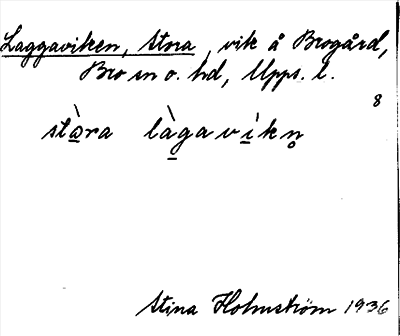 Laggaviken, Stora, vik å Brogård,
Bro sn o. hd, Upps. l.
8
stὰ̲ra là̲gavì̲kn̥
Stina Holmström 1936